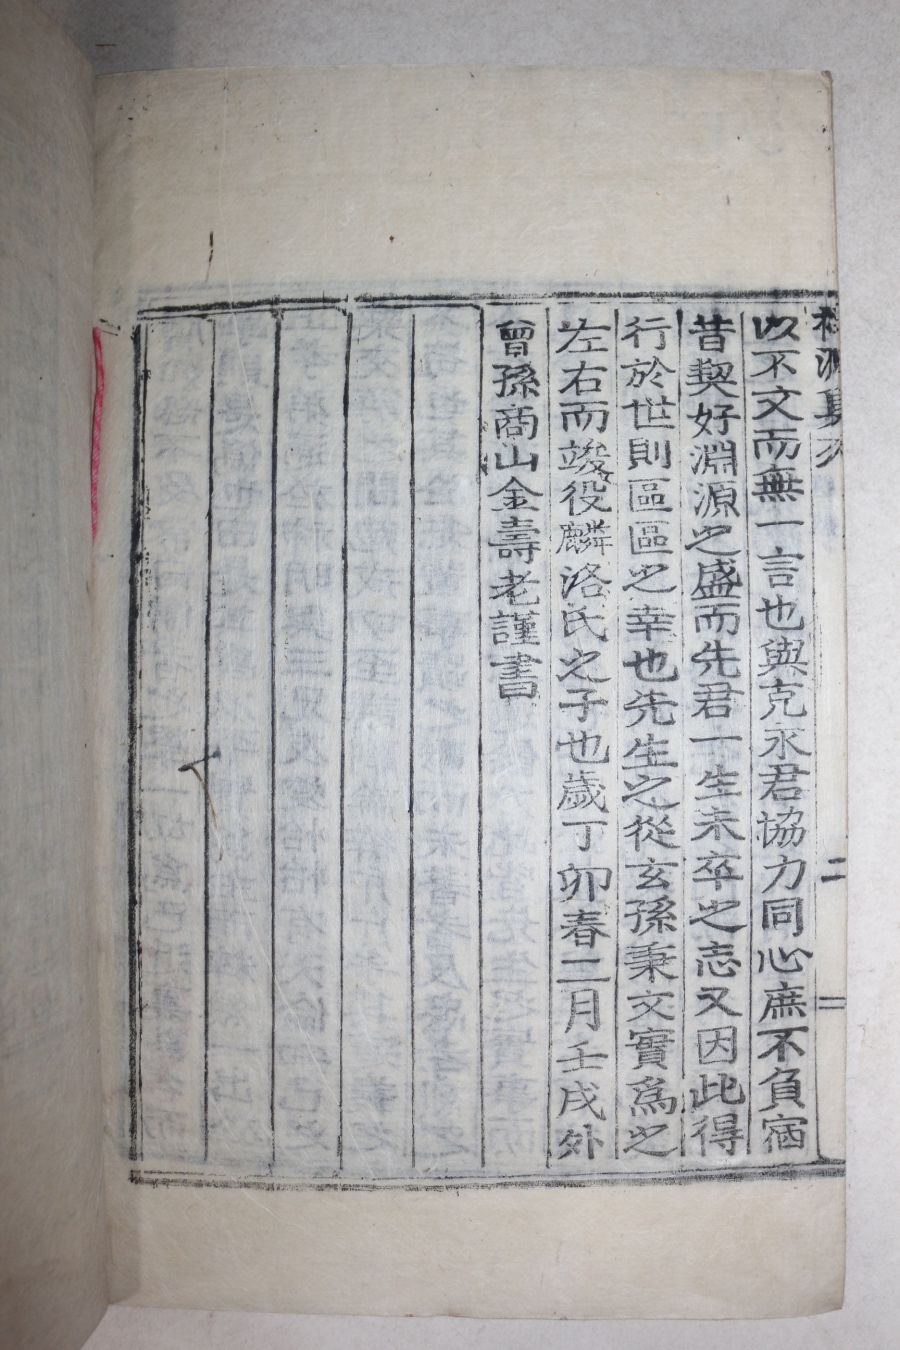 以不文而無一言也與克永君協力同心庶不負宿
昔契好淵源之盛而先君一生未卒之志又因此得
行於世則區區之幸也先生之從玄孫秉文實爲之
左右而竣役麟洛氏之子也歲丁卯春二月壬戌外
曾孫商山金壽老謹書
二